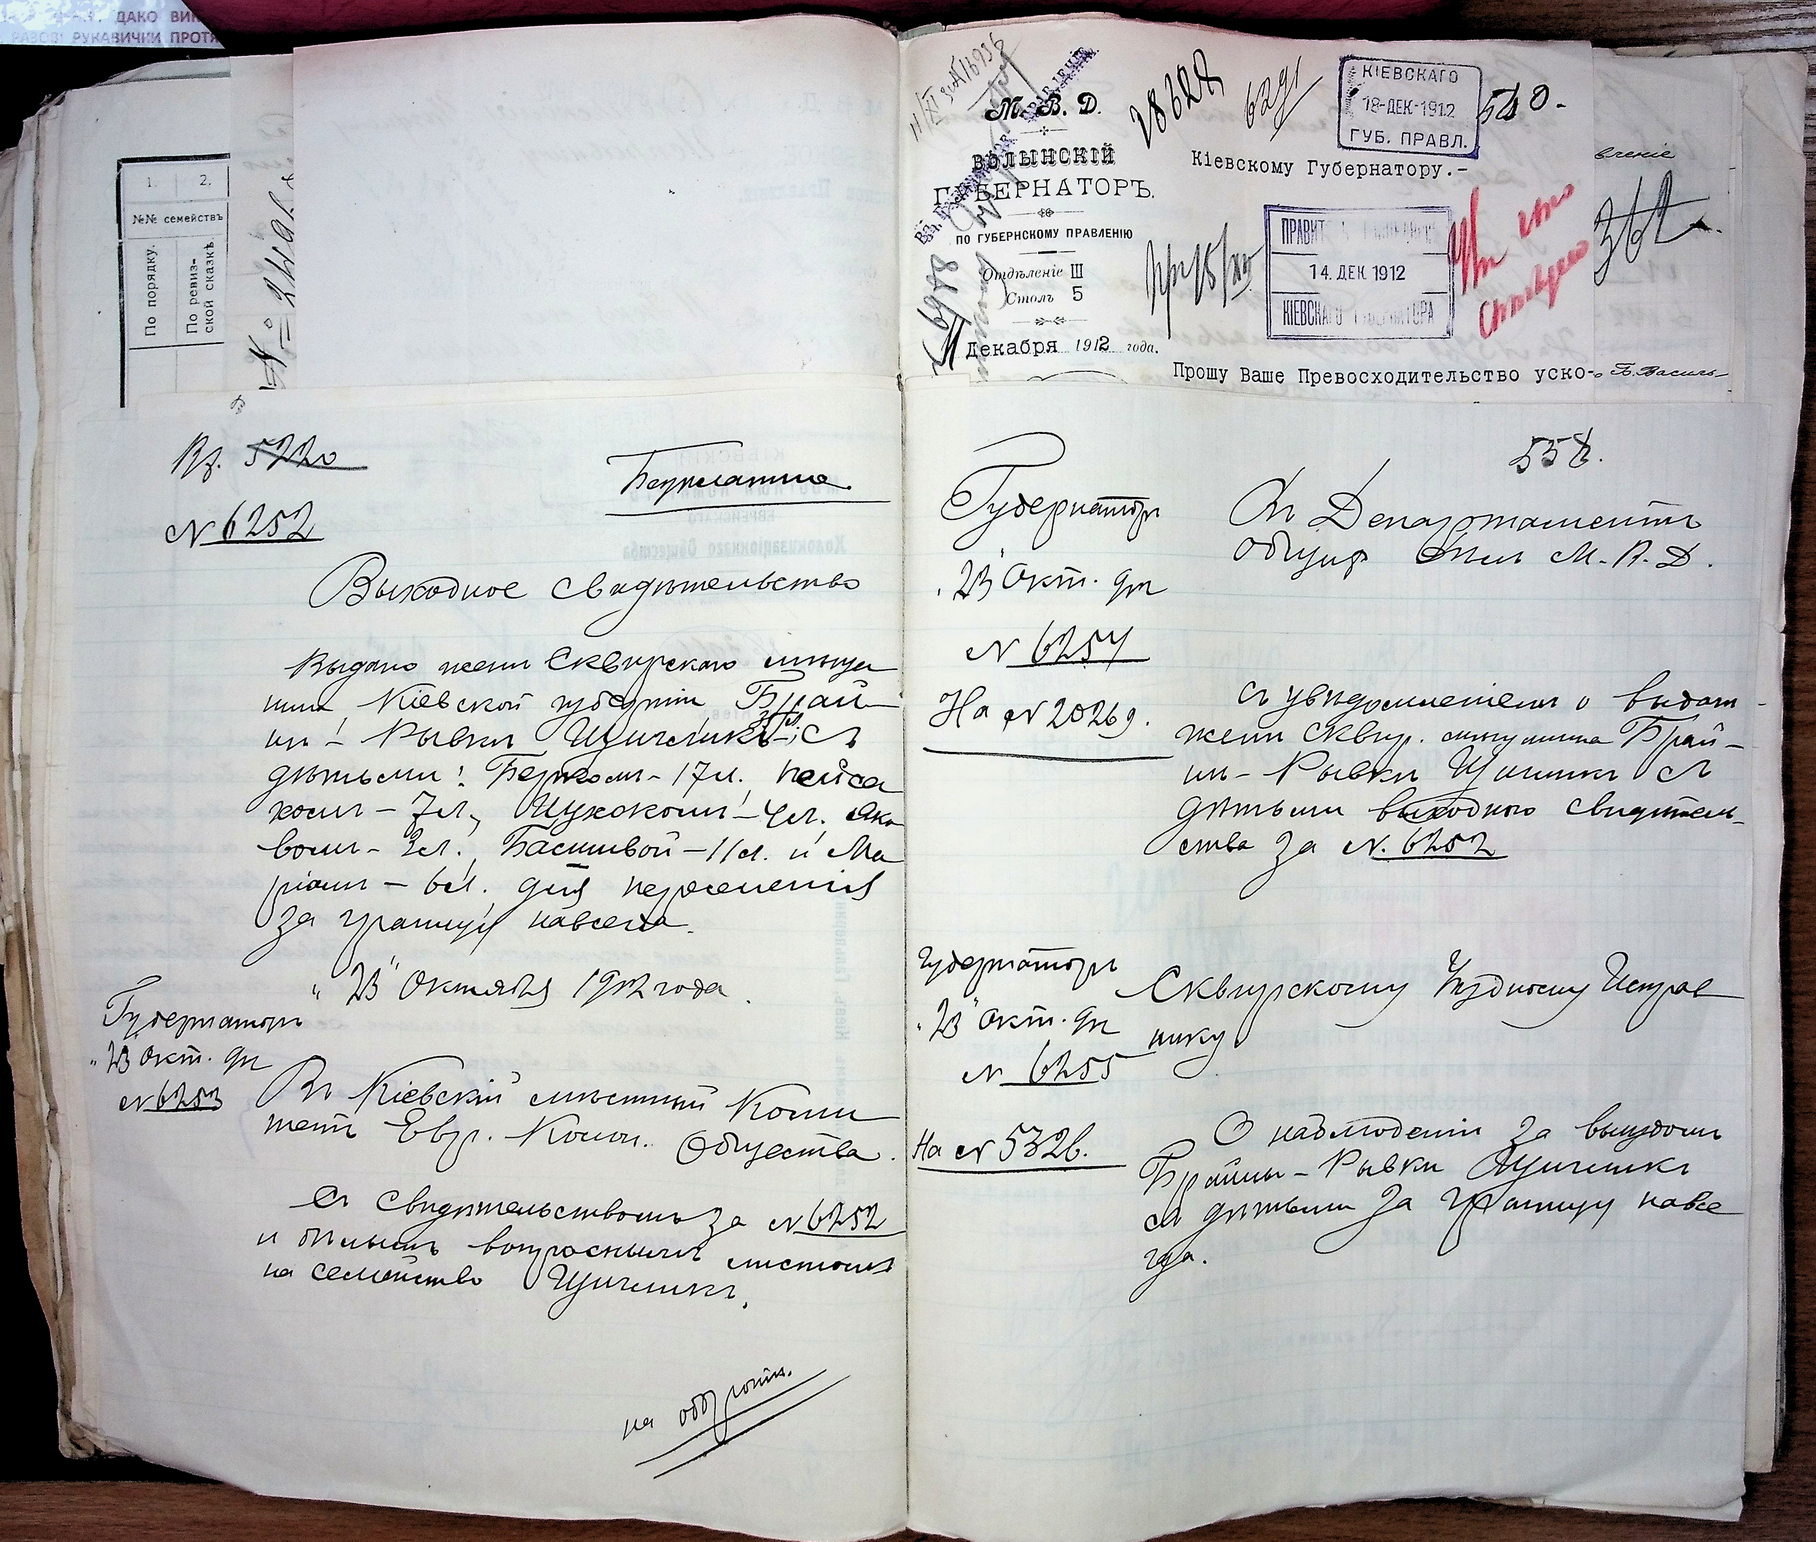 ДАКО ВИК
РАЗОВІ РУКАВИЧКИ ПРОТЯ
1. 2.
№№ семействъ
По порядку.
По ревиз-
ской сказкѣ.
М. В. Д.
ВОЛЫНСКІЙ
ГУБЕРНАТОРЪ.
ПО ГУБЕРНСКОМУ ПРАВЛЕНІЮ
Отдѣленіе III
Столъ 5
11 Декабря 1912 года.
28628
КІЕВСКАГО
18-ДЕК-1912
ГУБ. ПРАВЛ.
540.-
Кіевскому Губернатору.-
14. ДЕК. 1912
КІЕВСКАГО ГУБЕРНАТОРА
Прошу Ваше Превосходительство уско-
вленіе
362
Вз. 5220
№ 6252
Безплатно.
Выходное свидѣтельство
Выдано женѣ Сквирскаго мѣща
нина, Кіевской губерніи Брай-
нѣ-Рывкѣ Щичликъ, съ
дѣтьми: Беркомъ - 17 л., Пейса
хомъ - 7 л., Шухокомъ - 4 л. Яко
вомъ - 2 л., Басшивой - 11 л. и Ма
ріамъ - 6 л. для переселенія
за границу навсегда.
„23" Октября 1912 года.
Губернаторъ
„23" Окт. 912
№ 6253
Въ Кіевскій мѣстный Коми
тетъ Евр. Колон. Общества.
Съ свидѣтельствомъ за № 6252
и бѣлымъ вопроснымъ листомъ
на семейство Щичликъ.
на оборотѣ.
558.
Губернаторъ
„23" Окт. 912
№ 6254
На № 20269.
Въ Департаментъ
Общихъ Дѣлъ М.В.Д.
Съ увѣдомленіемъ о выдачѣ
женѣ Сквир. мѣщанина Брай-
нѣ-Рывкѣ Щичликъ съ
дѣтьми выходного свидѣтель-
ства за № 6252
Губернаторъ
„23" Окт. 912
№ 6255
На № 5326.
Сквирскому Уѣздному Исправ
нику
О наблюденіи за выѣздомъ
Брайны-Рывки Щичликъ
съ дѣтьми за границу навсе
гда.